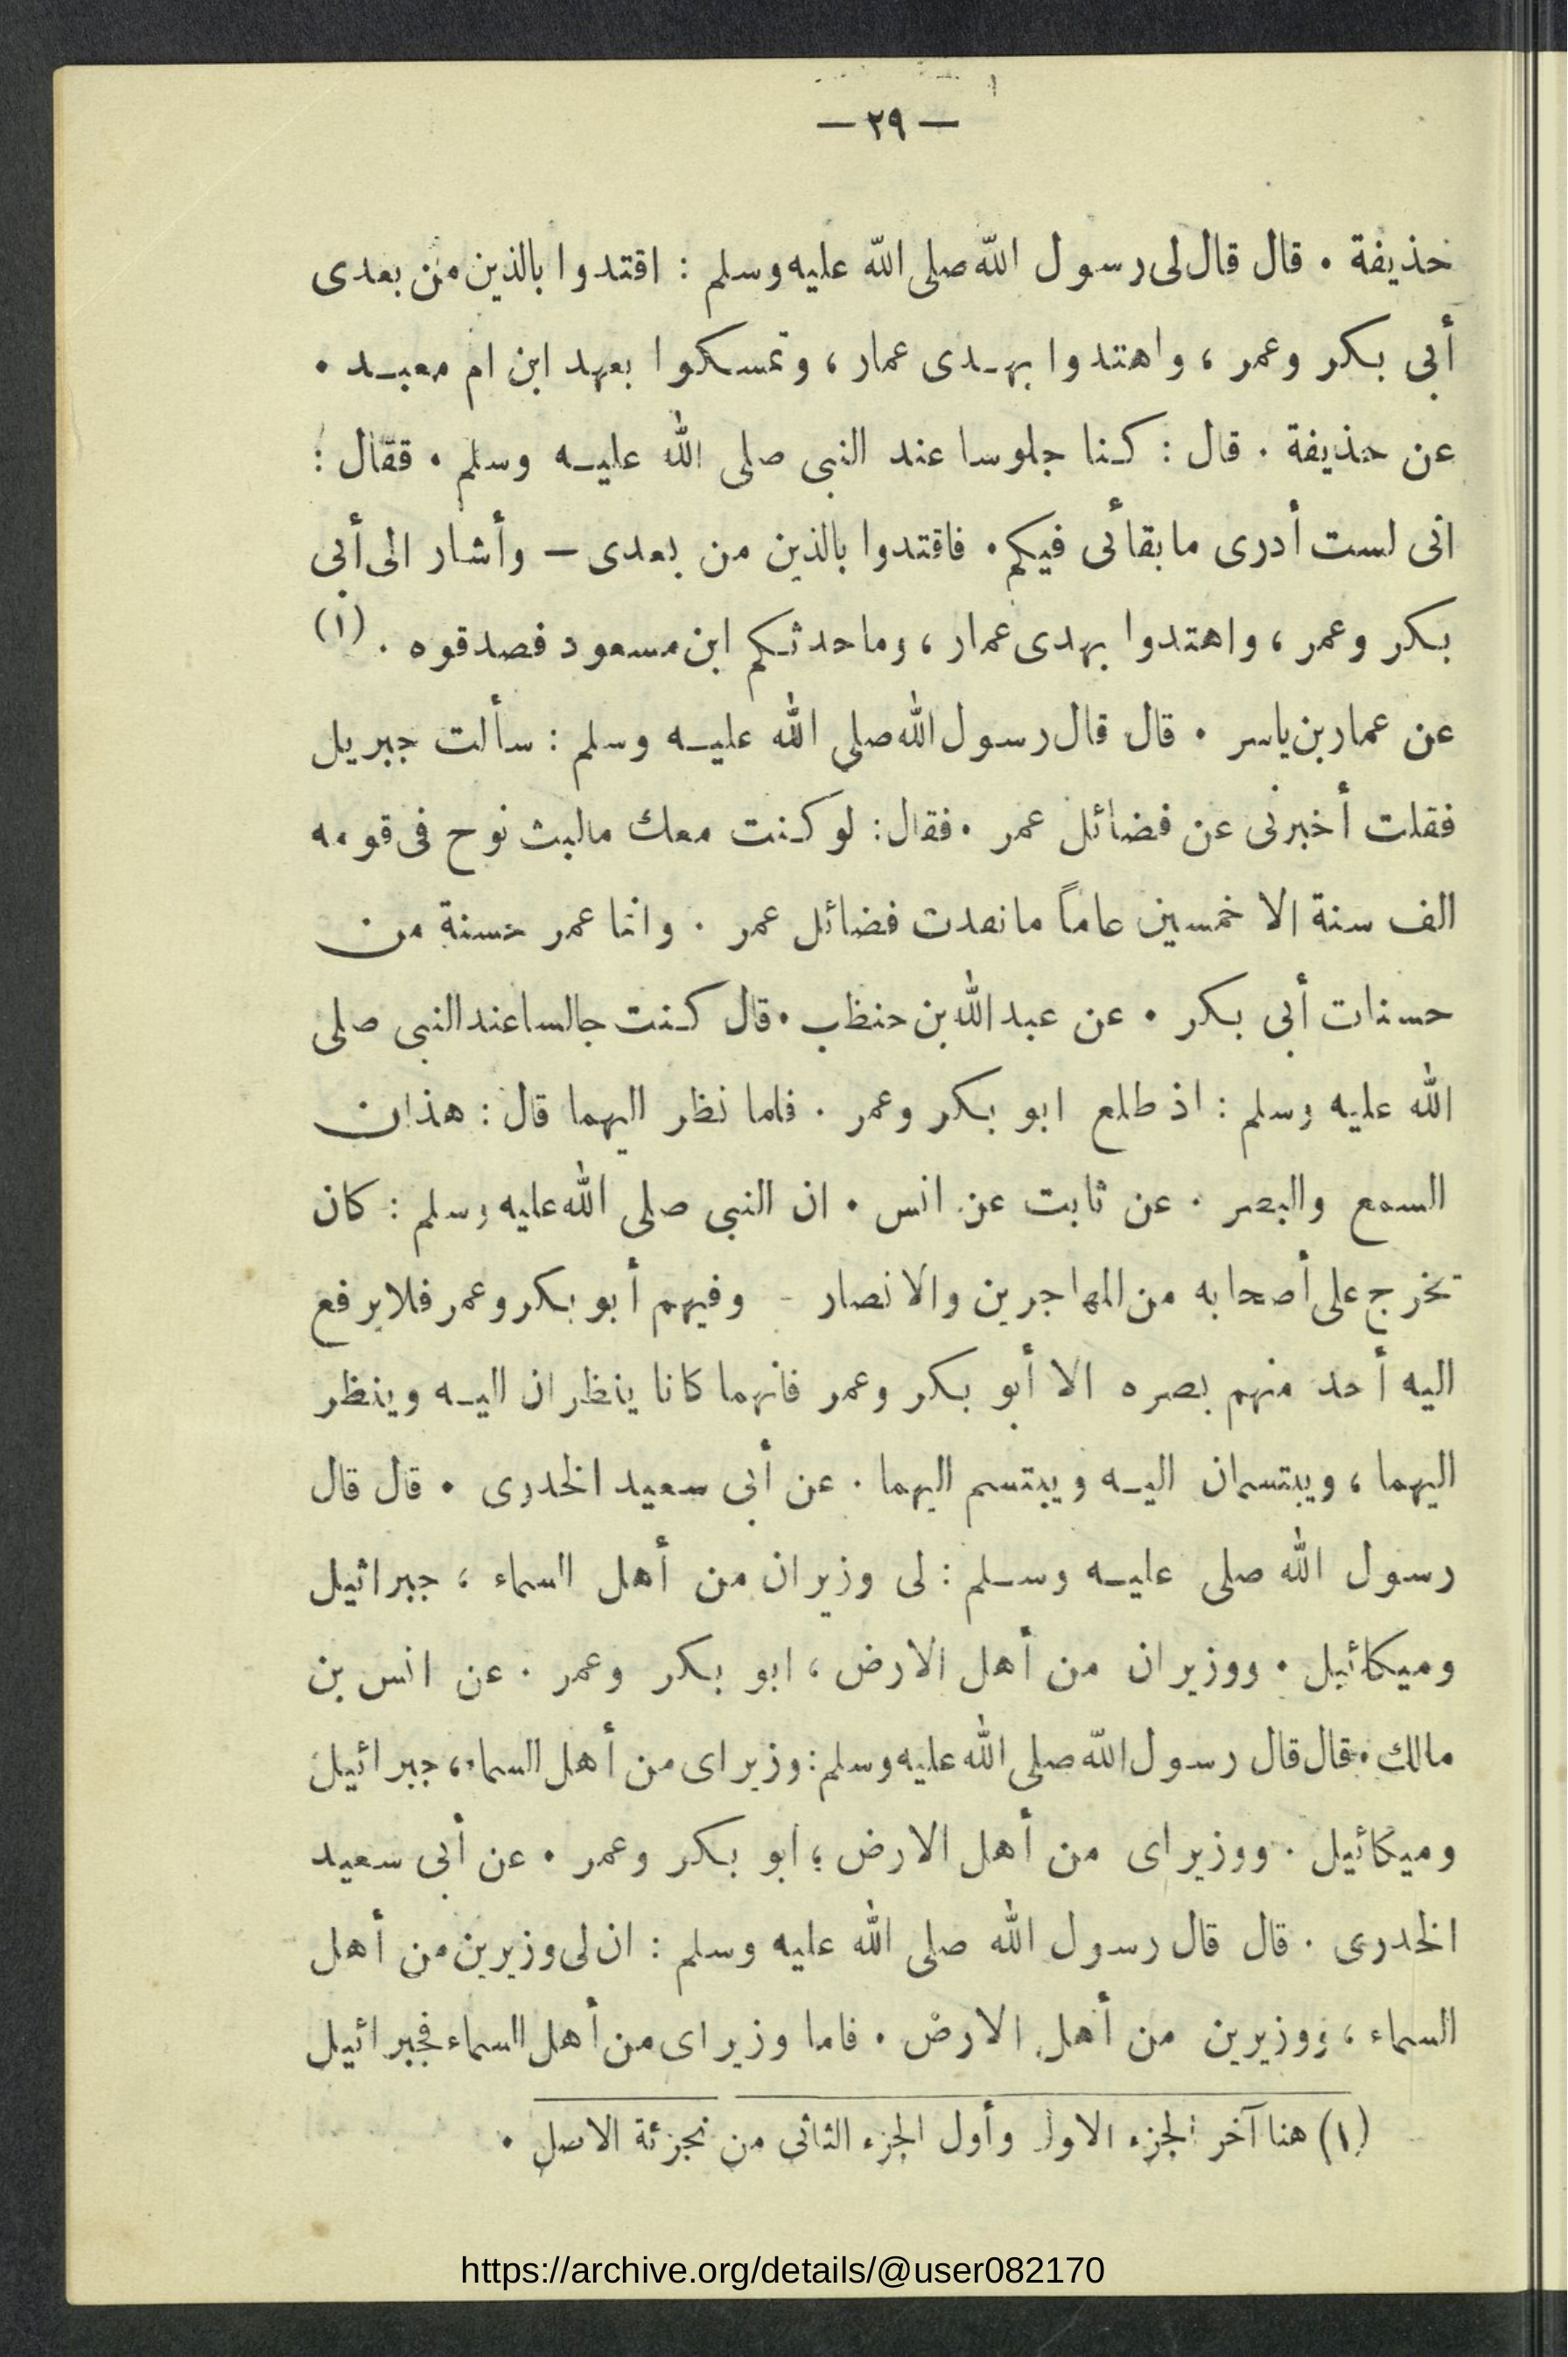 — ٢٩ —
حذيفة . قال قال لى رسول الله صلى الله عليه وسلم : اقتدوا بالذين من بعدى
أبى بكر وعمر ، واهتدوا بهدى عمار ، وتمسكوا بعهد ابن ام معبد .
عن حذيفة . قال : كنا جلوسا عند النبى صلى الله عليه وسلم . فقال :
انى لست أدرى مابقائى فيكم . فاقتدوا بالذين من بعدى — وأشار الى أبى
بكر وعمر ، واهتدوا بهدى عمار ، وماحدثكم ابن مسعود فصدقوه . (١)
عن عمار بن ياسر . قال قال رسول الله صلى الله عليه وسلم : سألت جبريل
فقلت أخبرنى عن فضائل عمر . فقال : لو كنت معك مالبث نوح فى قومه
الف سنة الا خمسين عاماً مانفدت فضائل عمر . وانما عمر حسنة من
حسنات أبى بكر . عن عبد الله بن حنظب . قال كنت جالسا عند النبى صلى
الله عليه وسلم : اذ طلع ابو بكر وعمر . فلما نظر اليهما قال : هذان
السمع والبصر . عن ثابت عن انس . ان النبى صلى الله عليه وسلم : كان
يخرج على أصحابه من المهاجرين والانصار - وفيهم أبو بكر وعمر فلا يرفع
اليه أحد منهم بصره الا أبو بكر وعمر فانهما كانا ينظران اليه وينظر
اليهما ، ويبتسمان اليه ويبتسم اليهما . عن أبى سعيد الخدرى . قال قال
رسول الله صلى عليه وسلم : لى وزيران من أهل السماء ، جبرائيل
وميكائيل . ووزيران من أهل الارض ، ابو بكر وعمر . عن انس بن
مالك . قال قال رسول الله صلى الله عليه وسلم : وزيراى من أهل السماء ، جبرائيل
وميكائيل . ووزيراى من أهل الارض ؛ ابو بكر وعمر . عن أبى سعيد
الخدرى . قال قال رسول الله صلى الله عليه وسلم : ان لى وزيرين من أهل
السماء ، ووزيرين من أهل الارض . فاما وزيراى من أهل السماء فجبرائيل
(١) هنا آخر الجزء الاول وأول الجزء الثانى من تجزئة الاصل .
https://archive.org/details/@user082170